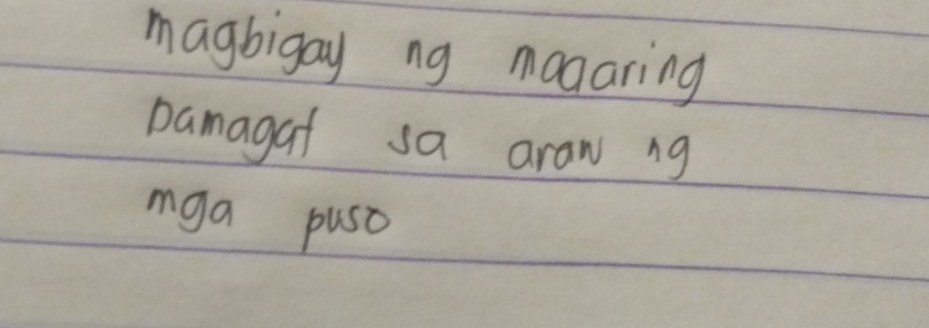 magbigay ng maaaring
Pamagat sa araw ng
mga puso